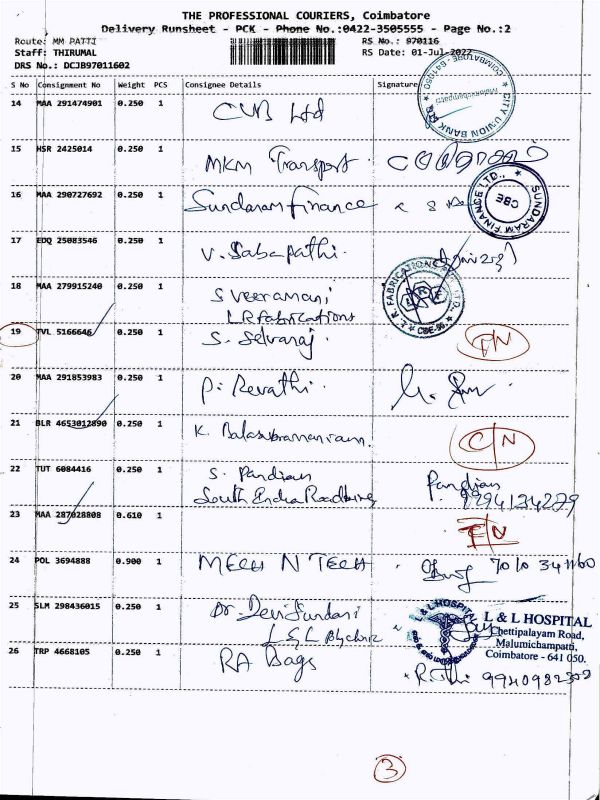 THE PROFESSIONAL COURIERS, Coimbatore
Delivery Runsheet - PCK - Phone No.:0422-3505555 - Page No.:2
Route: MM PATTI RS No.: 970116
Staff: THIRUMAL RS Date: 01-Jul-2022
DRS No.: DCJB97011602
S No Consignment No Weight PCS Consignee Details Signature
14 MAA 291474901 0.250 1 CUB Ltd
CITY UNION BANK LTD COIMBATORE - 641050
15 HSR 2425014 0.250 1 MKM Transport
16 MAA 290727692 0.250 1 Sundaram Finance
SUNDARAM FINANCE LTD., CBE
17 EDQ 25083546 0.250 1 V. Sabapathi
18 MAA 279915240 0.250 1 S Veeramani
LR Fabrications
L.R. FABRICATIONS LRF CBE-50.
19 TVL 5166646 0.250 1 S. Selvaraj
20 MAA 291853983 0.250 1 P. Revathi
21 BLR 4653012890 0.250 1 K. Balasubramaniam. C/N
22 TUT 6084416 0.250 1 S. Pandian Pandian
South India Roadlines
23 MAA 287028808 0.610 1
24 POL 3694888 0.900 1 MECH N TECH
25 SLM 298436015 0.250 1 Dr. Devi Sundari
L & L HOSPITAL
L & L HOSPITAL
Chettipalayam Road,
Malumichampatti,
Coimbatore - 641 050.
26 TRP 4668105 0.250 1 RA Bags
3